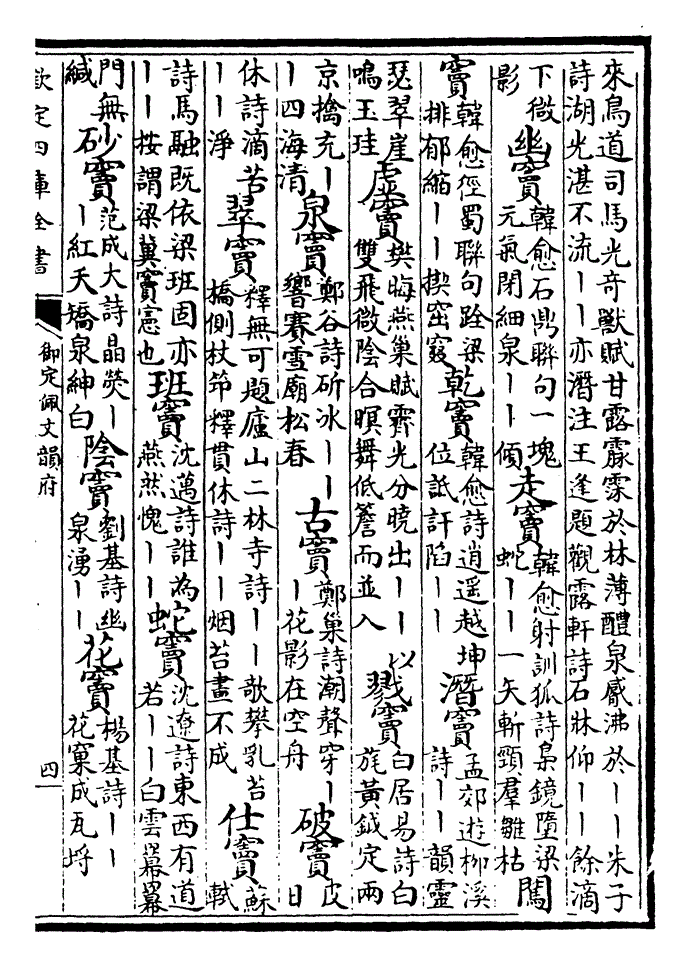 來鳥道司馬光奇獸賦甘露霡霂於林薄醴泉觱沸於丨丨朱子
詩湖光湛不流丨丨亦潛注王逢題觀露軒詩石牀仰丨丨餘滴
下微
影
幽竇
韓愈石鼎聯句一塊
元氣閉細泉丨丨傾
走竇
韓愈射訓狐詩梟鏡墮梁
蛇丨丨一矢斬頸羣雛枯
闖
竇
韓愈征蜀聯句跧梁
排郁縮丨丨揳窋窡
乾竇
韓愈詩逍遥越坤
位詆訐陷丨丨
潛竇
孟郊遊柳溪
詩丨丨韻靈
瑟翠崖
鳴玉珪
虛竇
樊晦燕巢賦霽光分曉出丨丨以
雙飛微陰合暝舞低簷而並入
戮竇
白居易詩白
旄黃鉞定兩
京擒充丨
丨四海清
泉竇
鄭谷詩斫冰丨丨
響賽雪廟松春
古竇
鄭巢詩潮聲穿丨
丨花影在空舟
破竇
皮
日
休詩滴苔
丨丨淨
翠竇
釋無可題廬山二林寺詩丨丨欹攀乳苔
橋側杖筇釋貫休詩丨丨烟苔畫不成
仕竇
蘇
軾
詩馬融既依梁班固亦
丨丨按謂梁冀竇憲也
班竇
沈邁詩誰為
燕然愧丨丨
蛇竇
沈遼詩東西有道
若丨丨白雲冪冪
門無
緘
砂竇
范成大詩晶熒丨
丨紅夭矯泉紳白
陰竇
劉基詩幽
泉湧丨丨
花竇
楊基詩丨丨
花窠成瓦埒
欽定四庫全書
御定佩文韻府
四